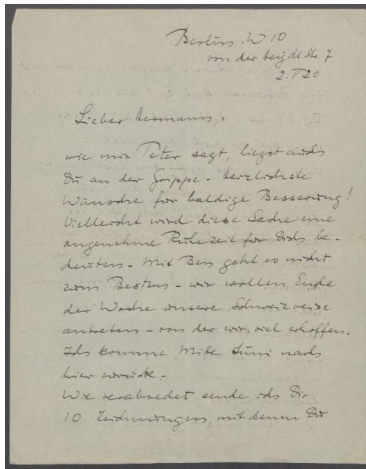 Berlin W 10
von der Heydt Str. 7
2. V 20
Lieber Hermann,
wie mir Peter sagt, liegst auch
Du an der Grippe - herzlichste
Wünsche für baldige Besserung!
Vielleicht wird diese Sache eine
angenehme Ruhezeit für Dich be-
deuten. Mit geht es nicht
zum Besten - wir wollen Ende
der Woche unsere Schweizreise
antreten - von der wir viel erhoffen.
Ich komme Mitte Juni nach
hier zurück -
Wie verabredet sende ich Dir
10 Zeichnungen, mit denen Du